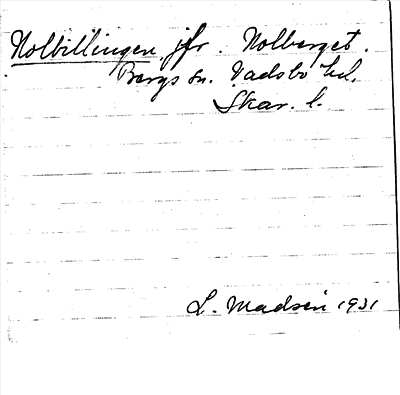 Nolbillingen jfr. Nolberget.
Bergs sn. Vadsbo hd.
Skar. l.
L. Madsén 1931